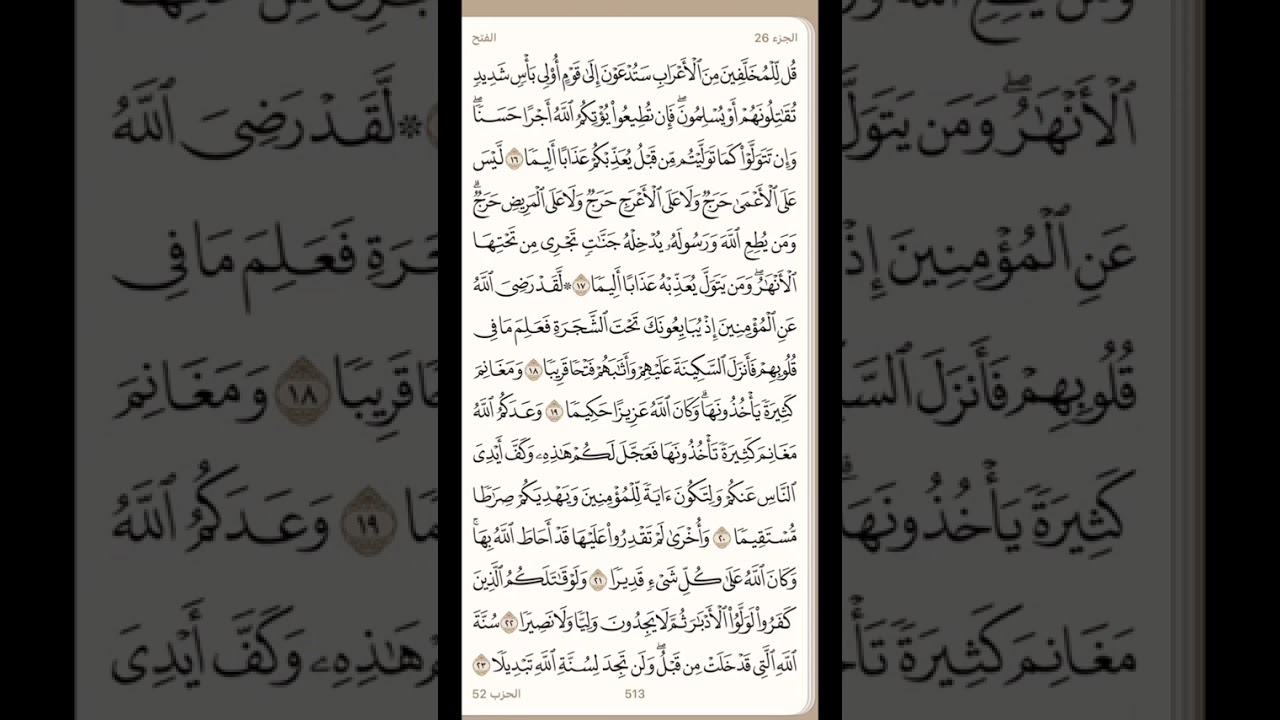 الجزء 26
الفتح
قُل لِّلْمُخَلَّفِينَ مِنَ ٱلْأَعْرَابِ سَتُدْعَوْنَ إِلَىٰ قَوْمٍ أُو۟لِى بَأْسٍ شَدِيدٍ
تُقَـٰتِلُونَهُمْ أَوْ يُسْلِمُونَ ۖ فَإِن تُطِيعُوا۟ يُؤْتِكُمُ ٱللَّهُ أَجْرًا حَسَنًا ۖ
وَإِن تَتَوَلَّوْا۟ كَمَا تَوَلَّيْتُم مِّن قَبْلُ يُعَذِّبْكُمْ عَذَابًا أَلِيمًا ١٦ لَّيْسَ
عَلَى ٱلْأَعْمَىٰ حَرَجٌ وَلَا عَلَى ٱلْأَعْرَجِ حَرَجٌ وَلَا عَلَى ٱلْمَرِيضِ حَرَجٌ ۗ
وَمَن يُطِعِ ٱللَّهَ وَرَسُولَهُۥ يُدْخِلْهُ جَنَّـٰتٍ تَجْرِى مِن تَحْتِهَا
ٱلْأَنْهَـٰرُ ۖ وَمَن يَتَوَلَّ يُعَذِّبْهُ عَذَابًا أَلِيمًا ١٧ ۞ لَّقَدْ رَضِىَ ٱللَّهُ
عَنِ ٱلْمُؤْمِنِينَ إِذْ يُبَايِعُونَكَ تَحْتَ ٱلشَّجَرَةِ فَعَلِمَ مَا فِى
قُلُوبِهِمْ فَأَنزَلَ ٱلسَّكِينَةَ عَلَيْهِمْ وَأَثَـٰبَهُمْ فَتْحًا قَرِيبًا ١٨ وَمَغَانِمَ
كَثِيرَةً يَأْخُذُونَهَا ۗ وَكَانَ ٱللَّهُ عَزِيزًا حَكِيمًا ١٩ وَعَدَكُمُ ٱللَّهُ
مَغَانِمَ كَثِيرَةً تَأْخُذُونَهَا فَعَجَّلَ لَكُمْ هَـٰذِهِۦ وَكَفَّ أَيْدِىَ
ٱلنَّاسِ عَنكُمْ وَلِتَكُونَ ءَايَةً لِّلْمُؤْمِنِينَ وَيَهْدِيَكُمْ صِرَٰطًا
مُّسْتَقِيمًا ٢٠ وَأُخْرَىٰ لَمْ تَقْدِرُوا۟ عَلَيْهَا قَدْ أَحَاطَ ٱللَّهُ بِهَا ۚ
وَكَانَ ٱللَّهُ عَلَىٰ كُلِّ شَىْءٍ قَدِيرًا ٢١ وَلَوْ قَـٰتَلَكُمُ ٱلَّذِينَ
كَفَرُوا۟ لَوَلَّوُا۟ ٱلْأَدْبَـٰرَ ثُمَّ لَا يَجِدُونَ وَلِيًّا وَلَا نَصِيرًا ٢٢ سُنَّةَ
ٱللَّهِ ٱلَّتِى قَدْ خَلَتْ مِن قَبْلُ ۖ وَلَن تَجِدَ لِسُنَّةِ ٱللَّهِ تَبْدِيلًا ٢٣
513
الحزب 52